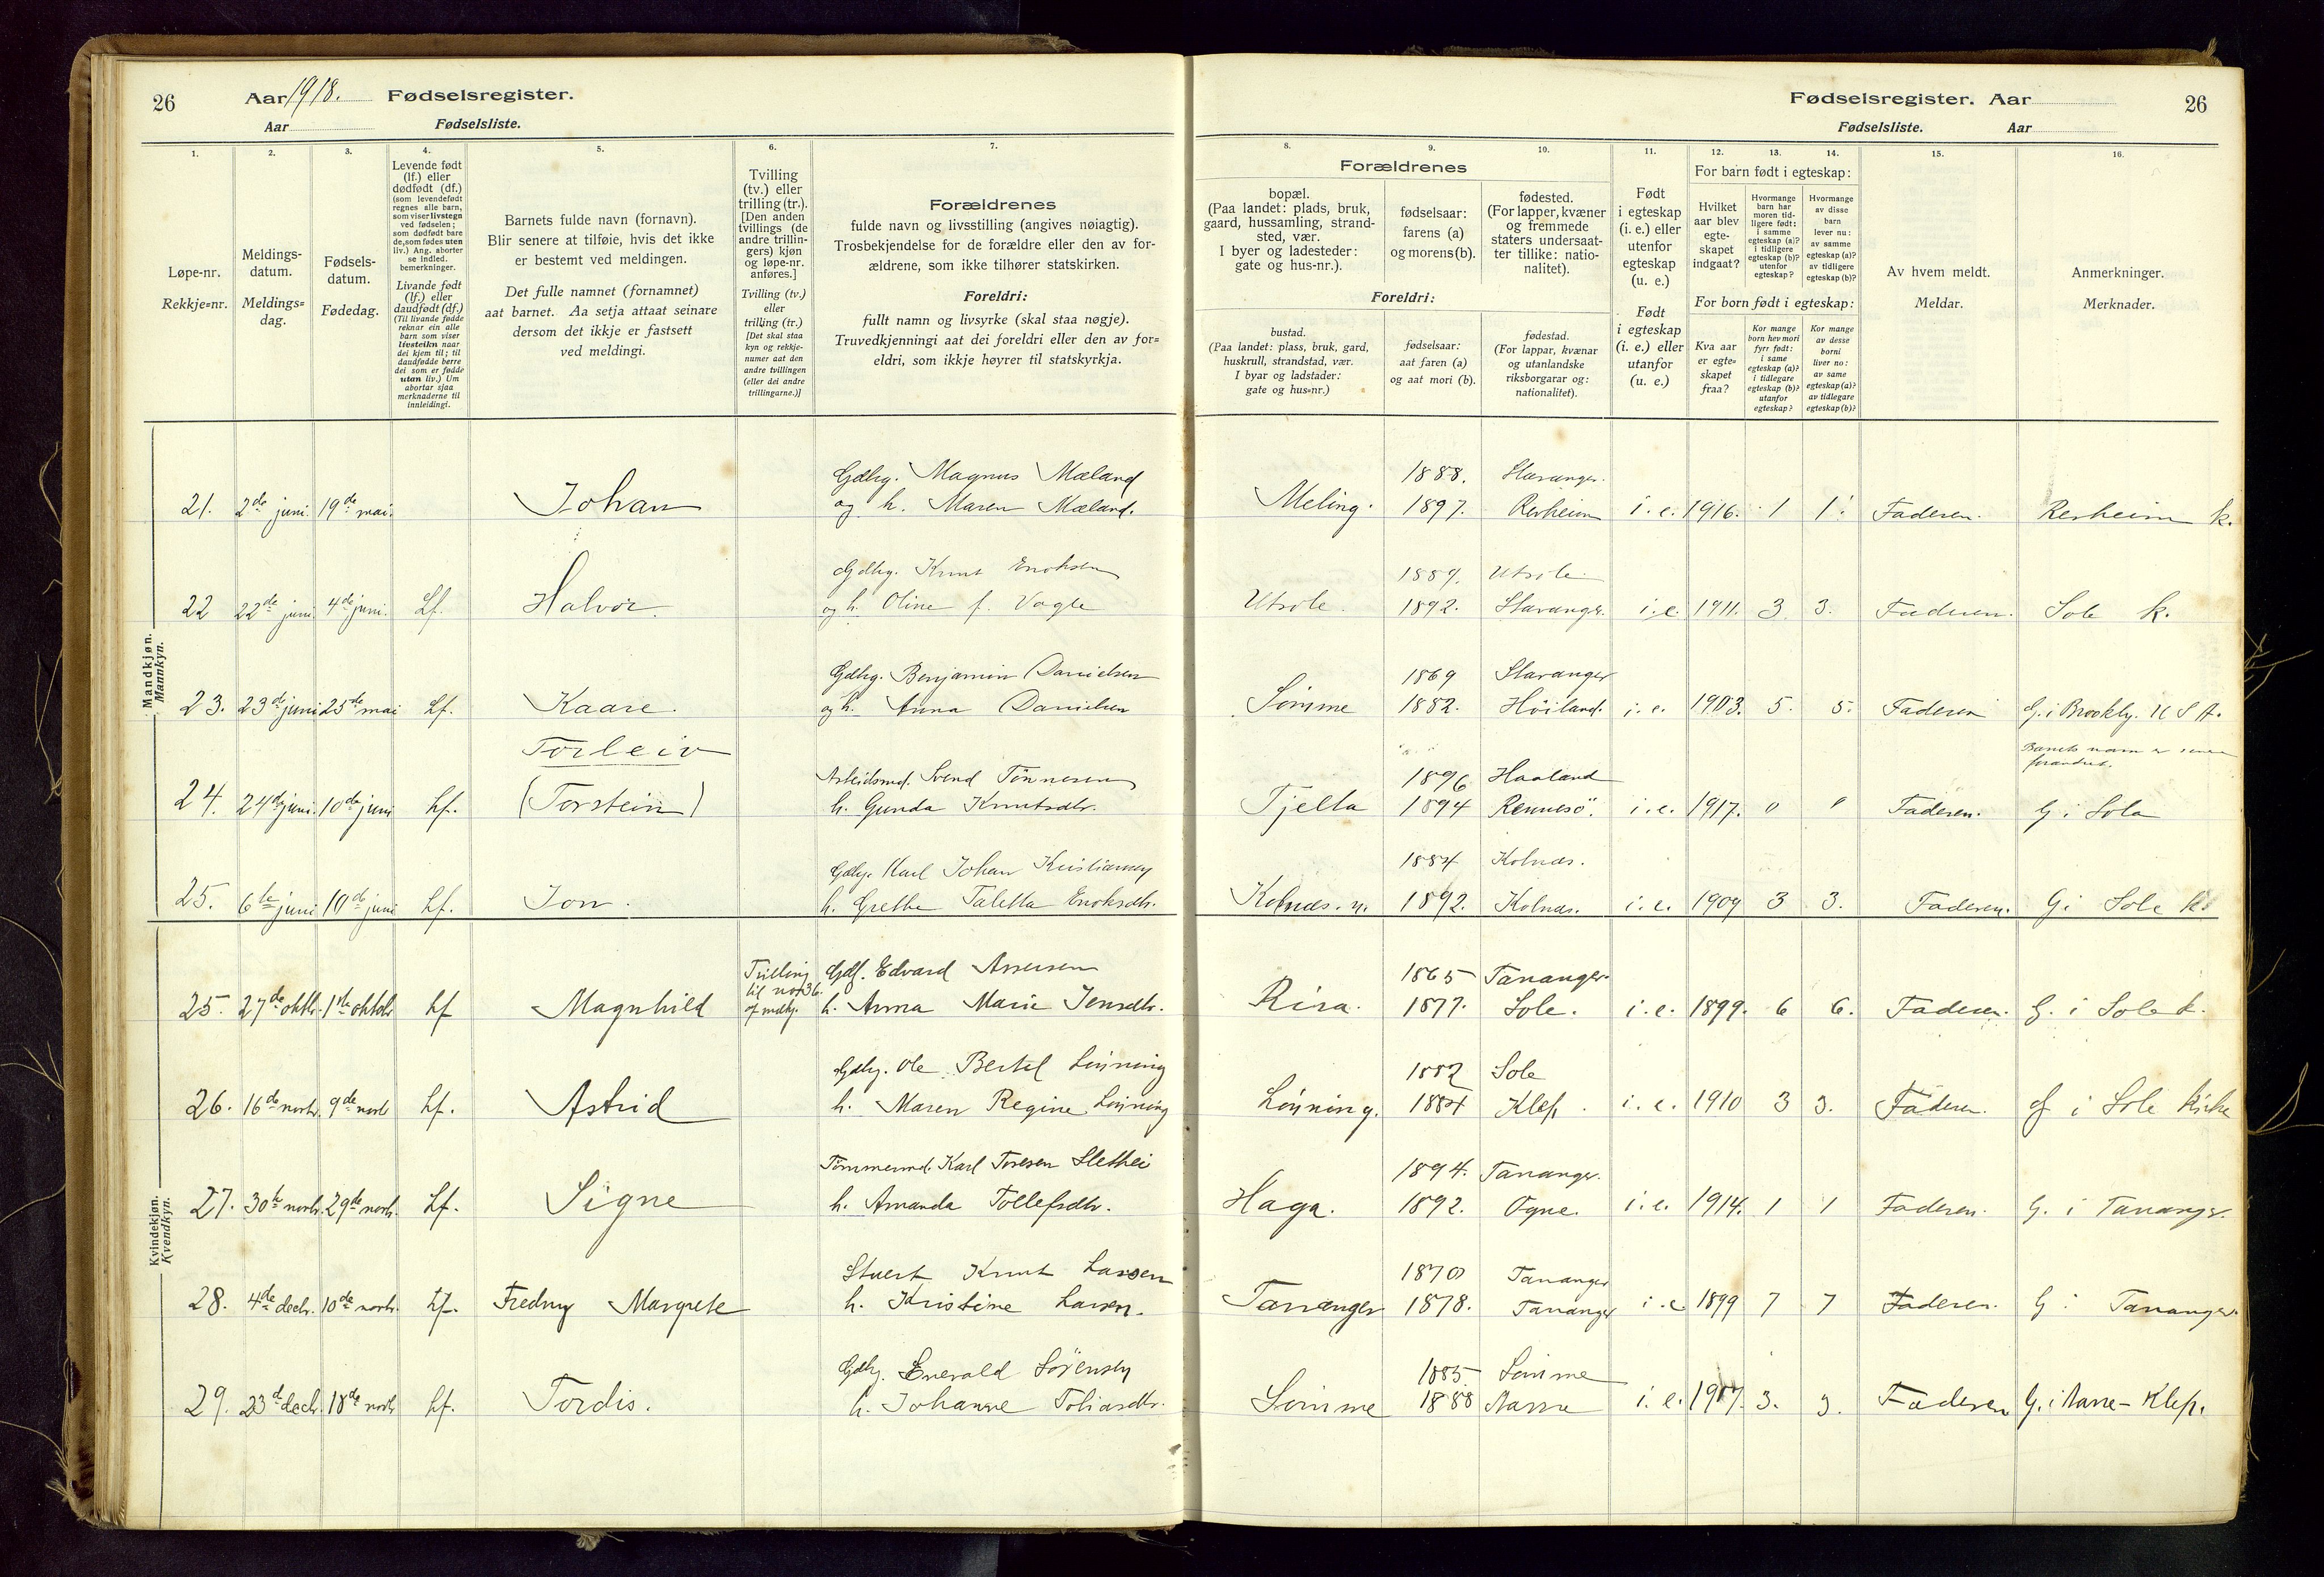 26 Aar 1918. Fødselsregister.
Aar Fødselsliste.
Fødselsregister. Aar 26
Fødselsliste. Aar
1. 2. 3. 4. 5. 6. 7.
Løpe-nr.
Rekkje=nr.
Meldings-
datum.
Meldings=
dag.
Fødsels-
datum.
Fødedag.
Levende født
(lf.) eller
dødfødt (df.)
(som levendefødt
regnes alle barn,
som viser livstegn
ved fødselen;
som dødfødt bare
de, som fødes uten
liv.) Ang. aborter
se indled.
bemerkninger.
Livande født
(lf.) eller
daudfødt (df.)
(Til livande fødde
reknar ein alle
barn som viser
lifsteikn naar
dei kjem til; til
daudfødde berre
dei som er fødde
utan liv.) Um
abortar sjaa
merknaderne til
innleidingi.
Barnets fulde navn (fornavn).
Blir senere at tilføie, hvis det ikke
er bestemt ved meldingen.
Det fulle namnet (fornamnet)
aat barnet. Aa setja attaat seinare
dersom det ikkje er fastsett
ved meldingi.
Tvilling
(tv.) eller
trilling (tr.).
[Den anden
tvillings (de
andre trillin-
gers) kjøn
og løpe-nr.
anføres.]
Tvilling (tv.)
eller
trilling (tr.)
[Det skal staa
kyn og rekkje-
numer aat den
andre tvillingen
(eller dei andre
trillingarne.)]
Forældrenes
fulde navn og livsstilling (angives nøiagtig).
Trosbekjendelse for de forældre eller den av for-
ældrene, som ikke tilhører statskirken.
Foreldri:
fullt namn og livsyrke (skal staa nøgje).
Truvedkjenningi aat dei foreldri eller den av for=
eldri, som ikkje høyrer til statskyrkja.
8. 9. 10. 11. 12. 13. 14. 15. 16.
Forældrenes
bopæl.
(Paa landet: plads, bruk,
gaard, hussamling, strand-
sted, vær.
I byer og ladesteder:
gate og hus-nr.).
fødselsaar:
farens (a)
og morens (b).
fødested.
(For lapper, kvæner
og fremmede
staters undersaat-
ter tillike: natio-
nalitet).
Foreldri:
bustad.
(Paa landet: plass, bruk, gard,
huskrull, strandstad, vær.
I byar og ladstader:
gate og hus=nr.)
fødselsaar:
aat faren (a)
og aat mori (b).
fødestad.
(For lappar, kvænar
og utanlandske
riksborgarar og:
nationalitet).
Født
i egteskap
(i. e.) eller
utenfor
egteskap
(u. e.)
Født
i egteskap
(i. e.) eller
utanfor
(u. e.)
For barn født i egteskap:
Hvilket
aar blev
egte-
skapet
indgaat?
Hvormange
barn har
moren tid-
ligere født:
i samme
egteskap (a)?
i tidligere
egteskap (b)?
utenfor
egteskap?
Hvormange
av disse
barn
lever nu:
av samme
egteskap (a)?
av tidligere
egteskap (b)?
For born født i egteskap:
Kva aar
er egte-
skapet
fraa?
Kor mange
born hev mori
fyrr født:
i same
egteskap (a)?
i tidlegare
egteskap (b)?
utanfor
egteskap?
Kor mange
av desse
borni
liver no:
av same
egteskap (a)?
av tidlegare
egteskap (b)?
Av hvem meldt.
Meldar.
Anmerkninger.
Merknader.
Mandkjøn.
Mannkyn.
Gdbrg. Magnus Mæland 1888. Stavanger.
21. 2de juni. 19de mai. Johan og h. Maren Mæland. Meling. 1897. Reeheim i. e. 1916. 1 1. Faderen. Reeheim k.
Gdbrg. Knut Enoksen 1889. Utsole
22 22de juni 4de juni. Lf. Halvor. og h. Oline f. Vagle Utsole. 1892. Stavanger. i. e. 1911. 3 3. Faderen. Sole k.
Gdbrg. Benjamin Danielsen 1869 Stavanger
23. 23de juni 25de mai Lf. Kaare. og h. Anna Danielsen Sömme 1882. Höiland. i. e. 1903. 5. 5. Faderen G. i Brookly. U S A.
Torleiv Barnets navn er senere
forandret.
Arbeidsmd. Svend Tönnesen 1896 Haaland
24. 24de juni. 10de juni Lf. (Torstein) h. Gunda Knutsdtr. Tjelta 1894 Rennesö. i. e. 1917. 0 0 Faderen. G. i Sola
Gdbrg. Karl Johan Kristiansen 1884 Kolnæs.
25. 6te juni 10de juni Lf. Jon. h. Grethe Taletta Enoksdtr. Kolnæs. n. 1892. Kolnæs. i. e. 1909 3 3. Faderen. G i Sole k.
Kvindekjøn.
Kvendkyn.
Tvilling
til no 36
af mdkj.
Gdf. Edvard Assersen 1865 Tananger
25. 27de oktbr. 1ste oktobr Lf Magnhild h. Anna Marie Jensdtr. Risa. 1877. Sole. i. e. 1899. 6 6. Faderen. G. i Sole k.
Gdbrg. Ole Bertel Lönning 1882 Sole
26. 16de novbr. 9de novb Lf. Astrid h. Maren Regine Lönning Lönning. 1884 Klep. i. e. 1910 3 3. Faderen. G i Sole kirke
Tömmermd. Karl Toresen Slethei 1894. Tananger.
27. 30te novbr. 29de novbr. Lf. Signe h. Amanda Tollefsdtr. Haga. 1892. Ogne. i. e. 1914. 1 1 Faderen. G. i Tananger.
Stuert Knut Larsen 1870 Tananger
28. 4de decbr. 10de novbr. Lf. Fredny Margrete h. Kristine Larsen. Tananger 1878. Tananger i. e 1899 7 7 Faderen. G i Tananger.
Gdbrg. Enevald Sörensen 1885 Sömme
29. 23d decbr. 18de novbr Lf. Tordis. h. Johanne Tobiasdtr. Sömme 1888 Narre i. e. 1917. 3. 3. Faderen G. i Narre - Klep.